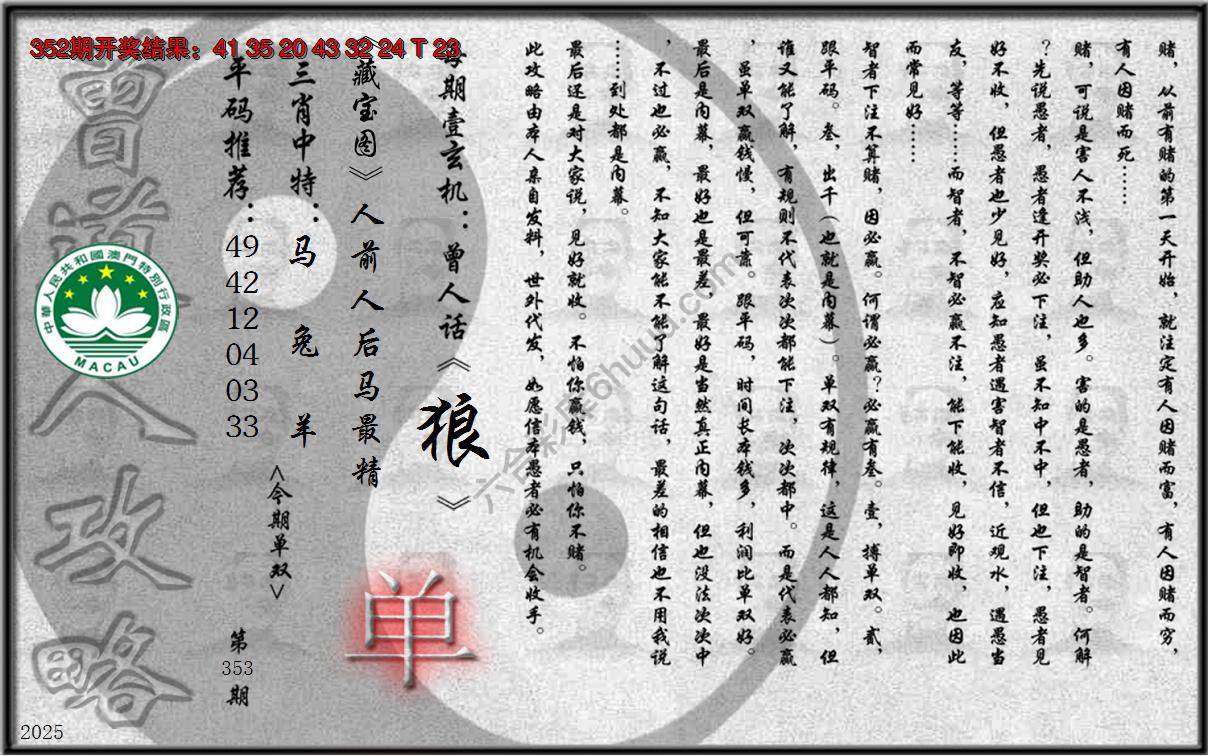 352期开奖结果：41 35 20 43 32 24 T 23
赌，从前有赌的第一天开始，就注定有人因赌而富，有人因赌而穷，
有人因赌而死……
赌，可说是害人不浅，但助人也多。害的是愚者，助的是智者。何解
？先说愚者，愚者逢开奖必下注，虽不知中不中，但也下注，愚者见
好不收，但愚者也少见好，应知愚者遇害智者不信，近观水，遇愚当
友，等等……而智者，不智必赢不注，能下能收，见好即收，也因此
而常见好……
智者下注不算赌，因必赢。何谓必赢？必赢有叁。壹，搏单双。贰，
跟平码。叁，出千（也就是内幕）。单双有规律，这是人人都知，但
谁又能了解，有规则不代表次次都能下注，次次都中。而是代表必赢
，虽单双赢钱慢，但可靠。跟平码，时间长本钱多，利润比单双好。
最后是内幕，最好也是最差，最好是当然真正内幕，但也没法次次中
，不过也必赢，不知大家能不能了解这句话，最差的相信也不用我说
……到处都是内幕。
最后还是对大家说，见好就收。不怕你赢钱，只怕你不赌。
此攻略由本人亲自发料，世外代发，如愿信本愚者必有机会收手。
每期壹玄机：曾人话《狼》
《藏宝图》人前人后马最精
三肖中特：马 兔 羊
平码推荐：49 42 12 04 03 33
<今期单双>
单
第
353
期
曾道人攻略
中華人民共和國澳門特別行政區
MACAU
六合彩库6huuu.com
2025